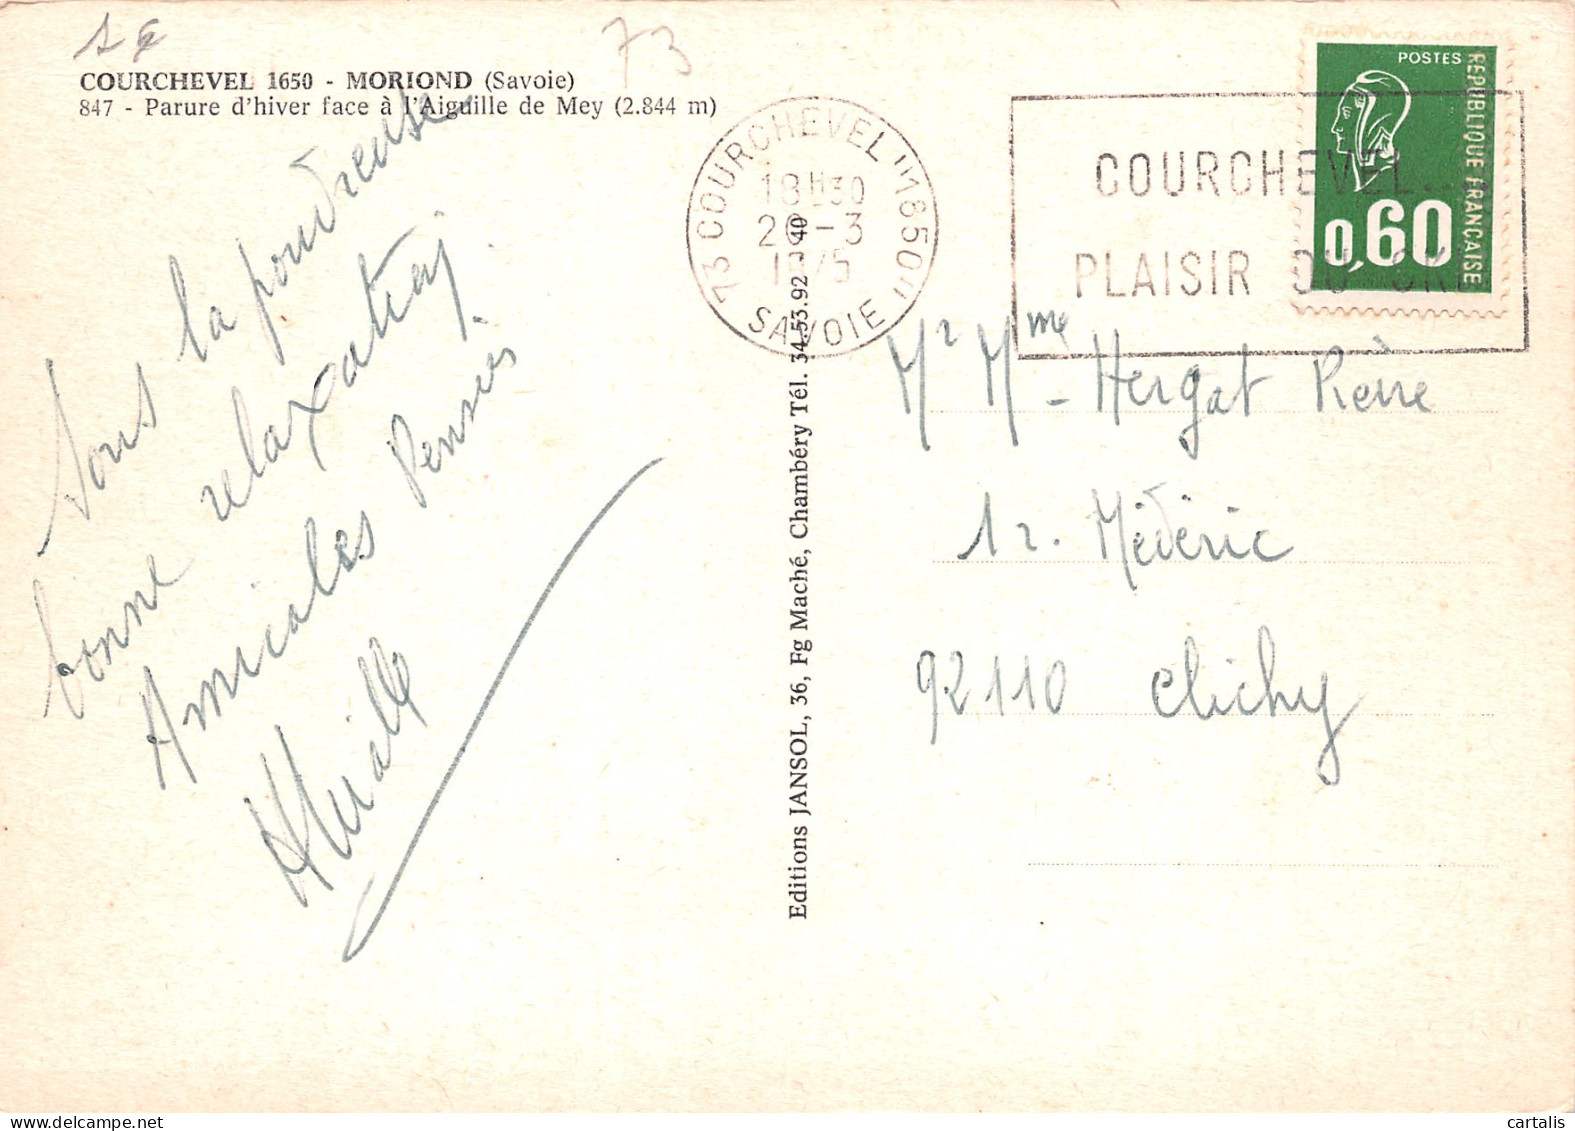 1 €
73
COURCHEVEL 1650 - MORIOND (Savoie)
847 - Parure d'hiver face à l'Aiguille de Mey (2.844 m)
Sous la poudreuse
bonne relaxation.
Amicales Pensées
73 COURCHEVEL "1850"
18H30
20-3
1975
SAVOIE
COURCHEVEL...
PLAISIR DU SKI
POSTES
REPUBLIQUE FRANÇAISE
0,60
Editions JANSOL, 36, Fg Maché, Chambéry Tél. 34.53.92 - 40
Mr Mme - Hergat
12. Médéric
92110 Clichy
cartalis